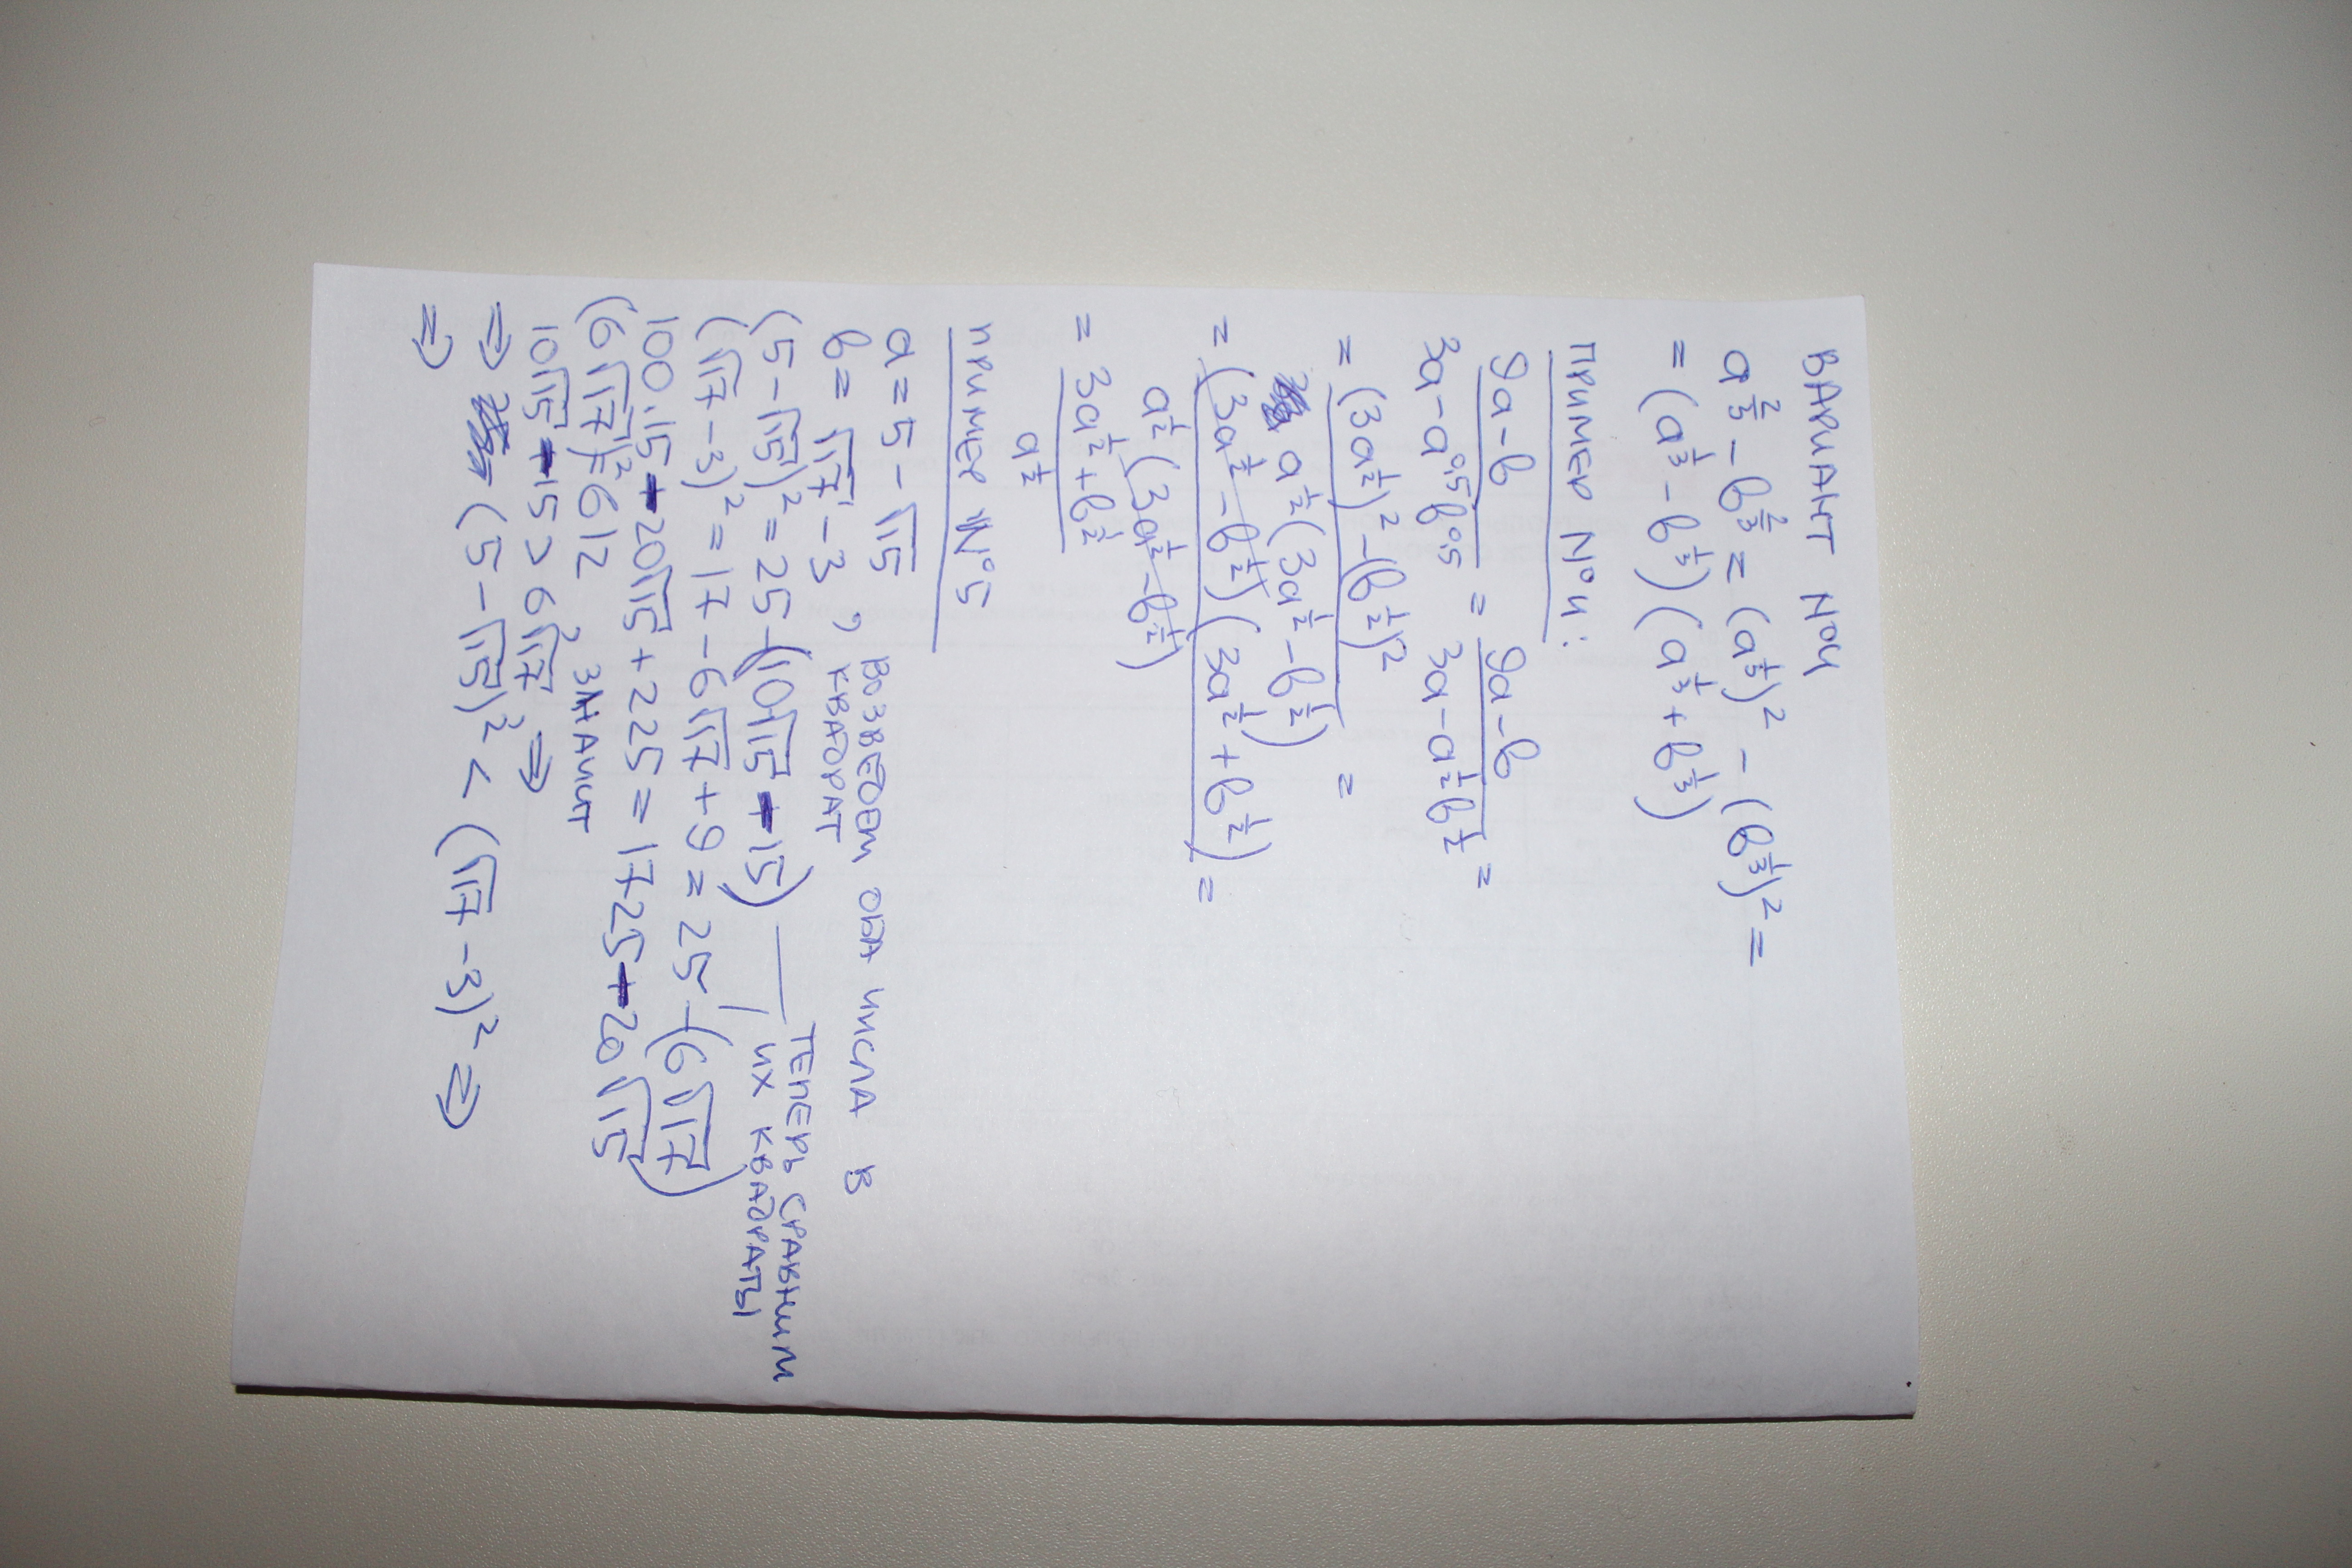 ВАРИАНТ №4
a^{2/3} - b^{2/3} = (a^{1/3})^2 - (b^{1/3})^2 =
= (a^{1/3} - b^{1/3}) (a^{1/3} + b^{1/3})
ПРИМЕР №4:
\frac{9a - b}{3a - a^{0,5} b^{0,5}} = \frac{9a - b}{3a - a^{1/2} b^{1/2}} =
= \frac{(3a^{1/2})^2 - (b^{1/2})^2}{a^{1/2} (3a^{1/2} - b^{1/2})} =
= \frac{(3a^{1/2} - b^{1/2}) (3a^{1/2} + b^{1/2})}{a^{1/2} (3a^{1/2} - b^{1/2})} =
= \frac{3a^{1/2} + b^{1/2}}{a^{1/2}}
ПРИМЕР №5
a = 5 - √15
b = √17 - 3 , ВОЗВЕДЕМ ОБА ЧИСЛА В
КВАДРАТ
(5 - √15)^2 = 25 - (10√15 - 15) ТЕПЕРЬ СРАВНИМ
(√17 - 3)^2 = 17 - 6√17 + 9 = 25 - (6√17) ИХ КВАДРАТЫ
100·15 - 20√15 + 225 = 1725 - 20√15
(6√17)^2 = 612, ЗНАЧИТ
10√15 - 15 > 6√17 ⇒
⇒ (5 - √15)^2 < (√17 - 3)^2 ⇒
⇒